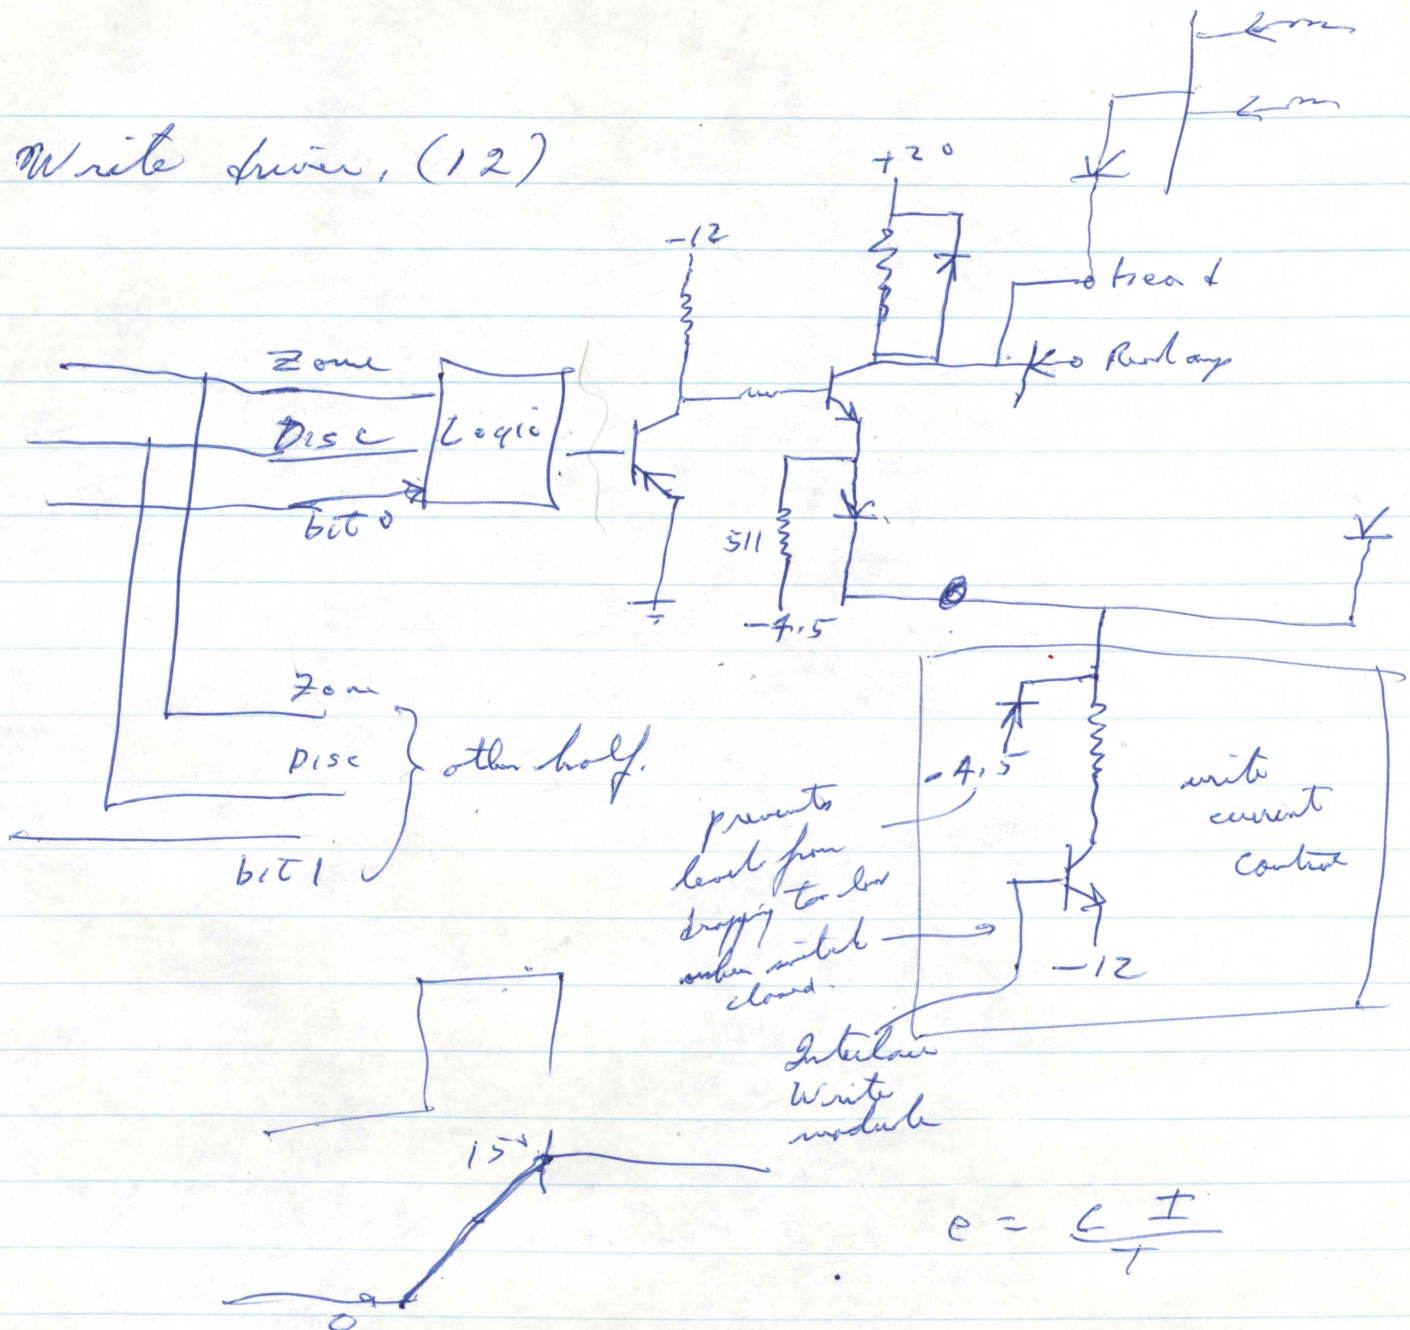 Write driver, (12)
+20
-12
head
Zone
Read amp
Disc
Logic
bit 0
511
-4.5
Zone
Disc
other half.
bit 1
-4.5
write
current
control
prevents
level from
dropping too low
when switch
closed.
-12
Interlace
Write
module
15v
e = C I
T
0